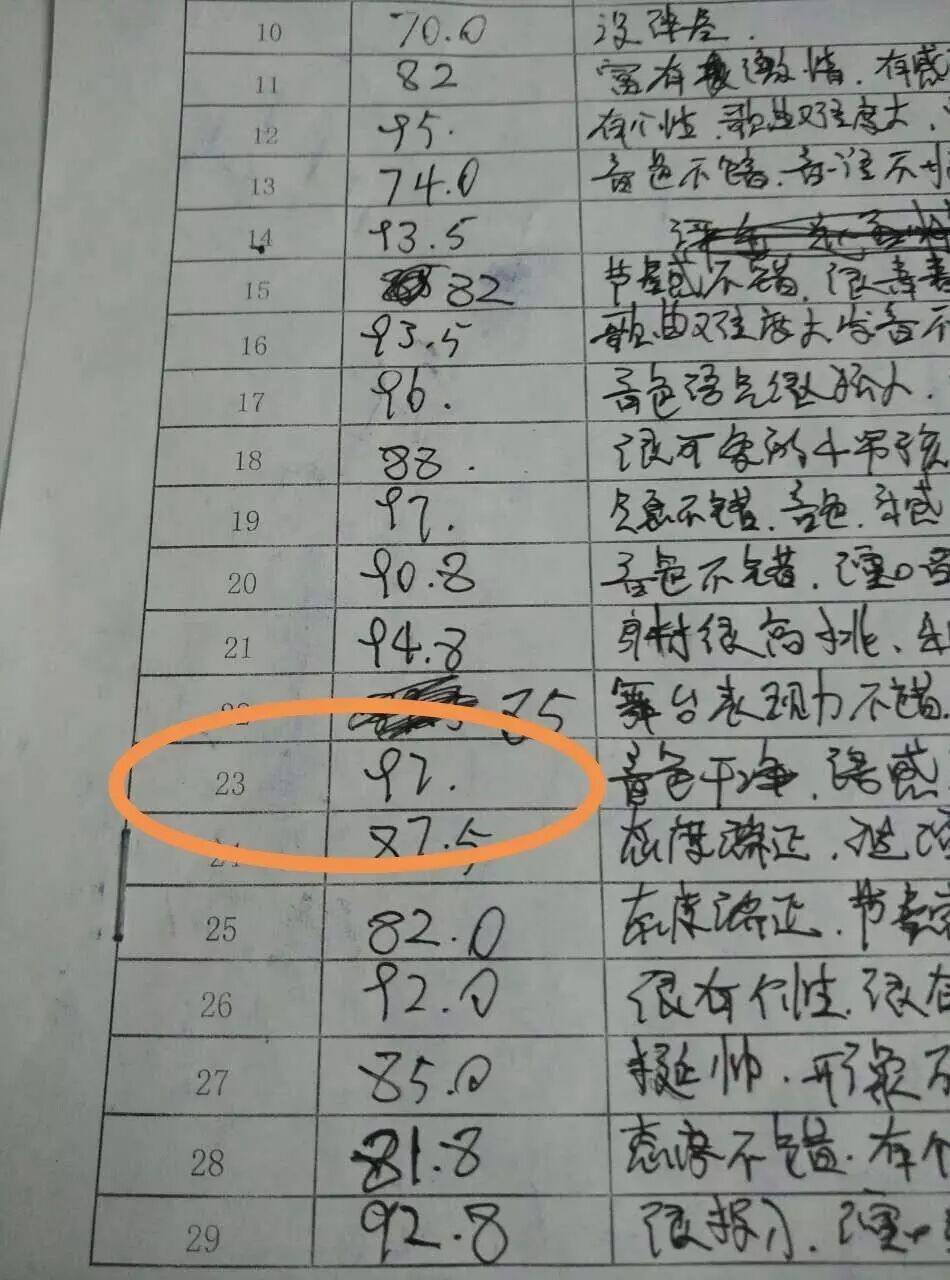 10 70.0 没弹唇.
11 82 富有激情.有感
12 95. 有个性.歌曲难度大.
13 74.0 音色不错.音准不
14 93.5
15 82 节奏感不错.很
16 93.5 歌曲难度大 发音不
17 96. 音色语气很
18 88. 很可爱的小男孩
19 97. 气息不错.音色.乐感
20 90.8 音色不错.
21 94.8 身材很高挑、
22 75 舞台表现力不错.
23 97. 音色干净.语感
24 87.5 态度端正.
25 82.0 态度端正.节奏
26 92.0 很有个性.很有
27 85.0 挺帅.形象不
28 81.8 态度不错.有个
29 92.8 很投入.